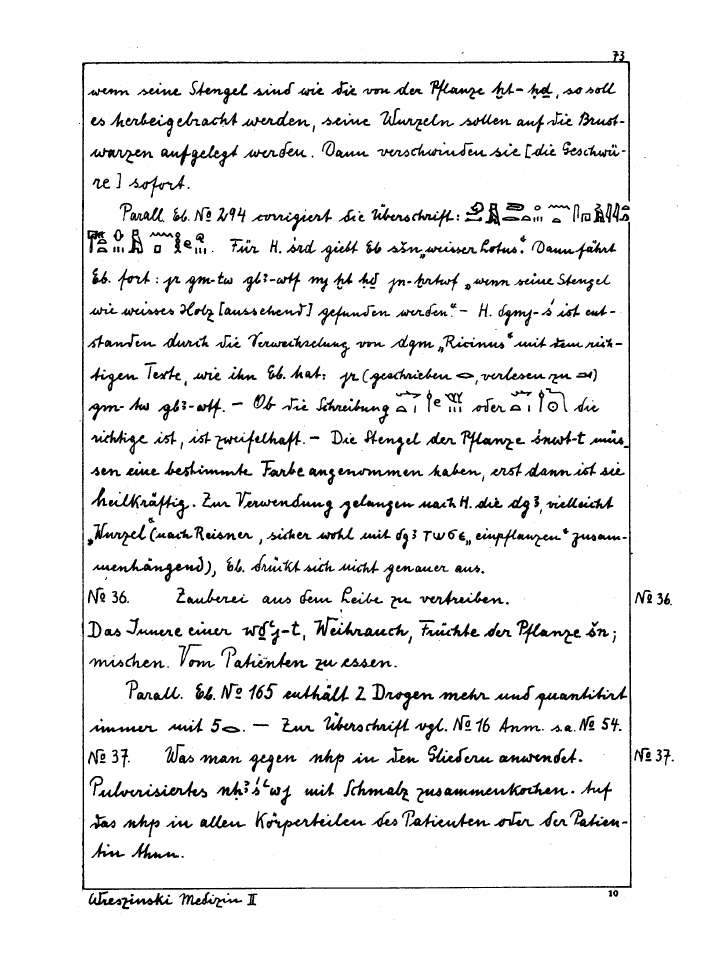 73
wenn seine Stengel sind wie die von der Pflanze ḫt-ḥḏ, so soll
es herbeigebracht werden, seine Wurzeln sollen auf die Brust-
warzen aufgelegt werden. Dann verschwinden sie [die Geschwü-
re] sofort.
Parall. Eb. № 294 corrigiert die Überschrift:
Für H. śrd giebt Eb sšn „weisser Lotus“. Dann fährt
Eb. fort: jr gm-tw gbꜣ-wtf mj ḫt ḥḏ jn-ḫrtwf „wenn seine Stengel
wie weisses Holz [aussehend] gefunden werden“. – H. dgmj-ś ist ent-
standen durch die Verwechselung von dgm „Ricinus“ mit dem rich-
tigen Texte, wie ihn Eb. hat: jr (geschrieben, verlesen zu)
gm-tw gbꜣ-wtf. – Ob die Schreibung oder die
richtige ist, ist zweifelhaft. – Die Stengel der Pflanze śnwt-t müs-
sen eine bestimmte Farbe angenommen haben, erst dann ist sie
heilkräftig. Zur Verwendung gelangen nach H. die dgꜣ, vielleicht
„Wurzel“ (nach Reisner, sicher wohl mit dgꜣ ⲧⲱϭⲉ „einpflanzen“ zusam-
menhängend), Eb. drückt sich nicht genauer aus.
№ 36. Zauberei aus dem Leibe zu vertreiben. № 36.
Das Innere einer wḏꜥj-t, Weihrauch, Früchte der Pflanze šn;
mischen. Vom Patienten zu essen.
Parall. Eb. № 165 enthält 2 Drogen mehr und quantitirt
immer mit 5. — Zur Überschrift vgl. № 16 Anm. s.a. № 54.
№ 37. Was man gegen nhp in den Gliedern anwendet. № 37.
Pulverisiertes nḥꜣśꜥwj mit Schmalz zusammenkochen. Auf
das nhp in allen Körperteilen des Patienten oder der Patien-
tin thun.
Wreszinski Medizin II 10